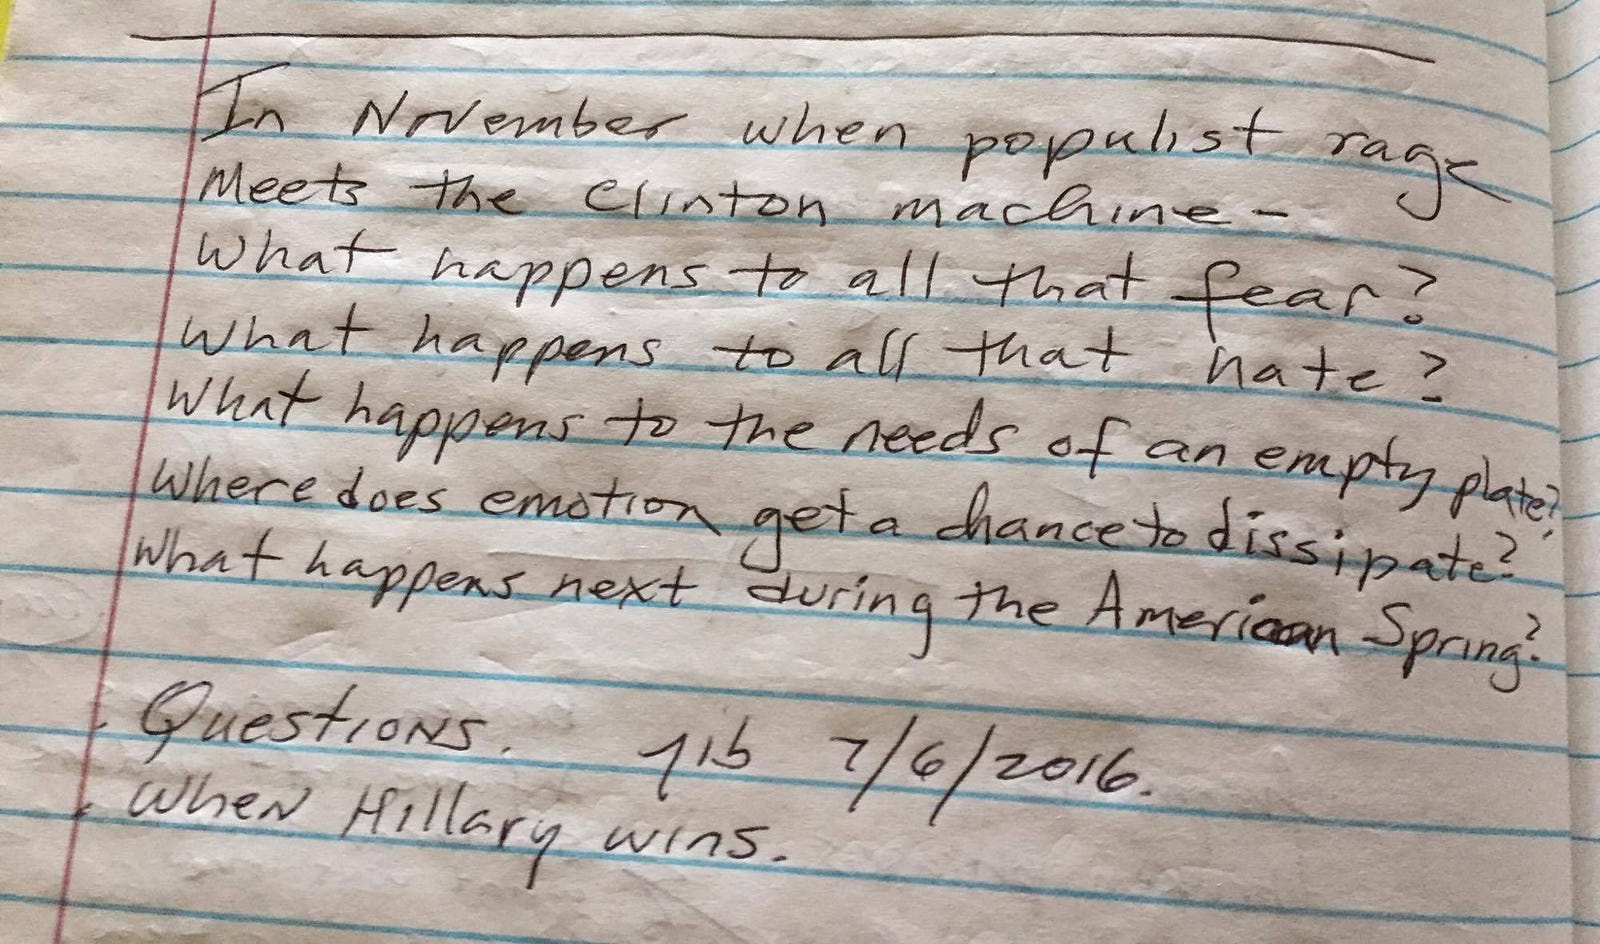 In November when populist rage
Meets the Clinton machine -
What happens to all that fear?
What happens to all that hate?
What happens to the needs of an empty plate?
Where does emotion get a chance to dissipate?
What happens next during the American Spring?
Questions. 7/6/2016.
When Hillary wins.